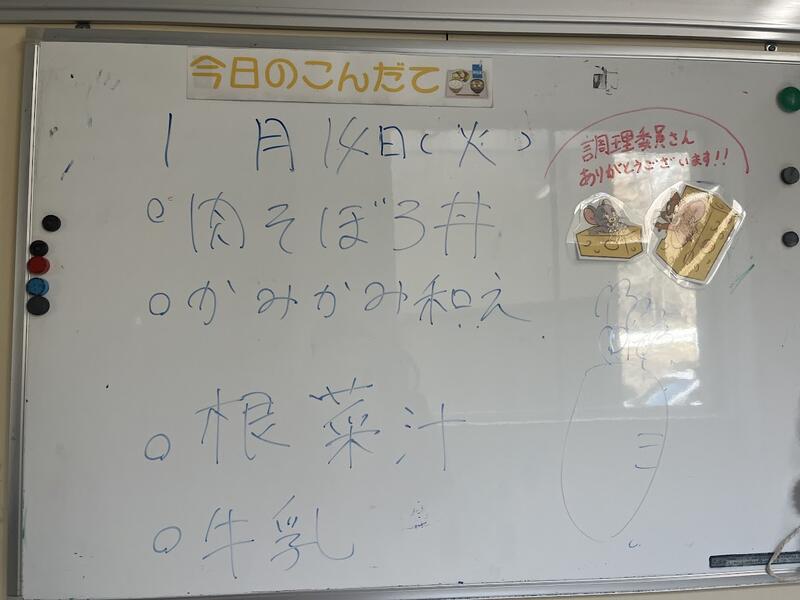 今日のこんだて
1月14日(火)
調理委員さん
ありがとうございます!!
○肉そぼろ丼
○かみかみ和え
○根菜汁
○牛乳